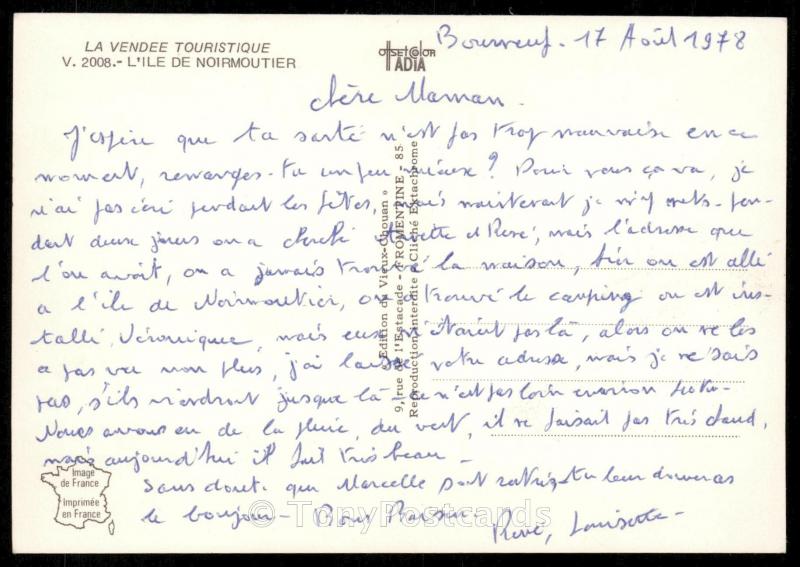 LA VENDEE TOURISTIQUE
V. 2008.- L'ILE DE NOIRMOUTIER
OFFSET COLOR
IADIA
Bourneuf. 17 Août 1978
chère Maman.
J'espère que ta santé n'est pas trop mauvaise en ce
moment, remanges-tu un peu mieux? Pour nous ça va, je
n'ai pas écri pendant les fêtes, mais maintenant je m'y mets - pen-
dant deux jours on a cherché et René, mais l'adresse que
l'on avait, on a jamais trouvé la maison, hier on est allé
a l'ile de Noirmoutier, on a trouvé le camping ou est ins-
tallé Véronique, mais eux n'étaient pas là, alors on ne les
a pas vu non plus, j'ai laissé votre adresse, mais je ne sais
pas, s'ils viendront jusque là - ce n'est pas loin environ
Nous avons eu de la pluie, du vent, il ne faisait pas très chaud,
mais aujourd'hui il fait très beau -
Sans doute que Marcelle sont rentrés - tu leur donneras
le bonjour - Bons Baisers.
René, Louisette -
« Edition du Vieux-Chouan »
9, rue de l'Estacade - FROMENTINE - 85
Reproduction interdite - Cliché Extachrome
Image
de France
Imprimée
en France
© TonyPostcards